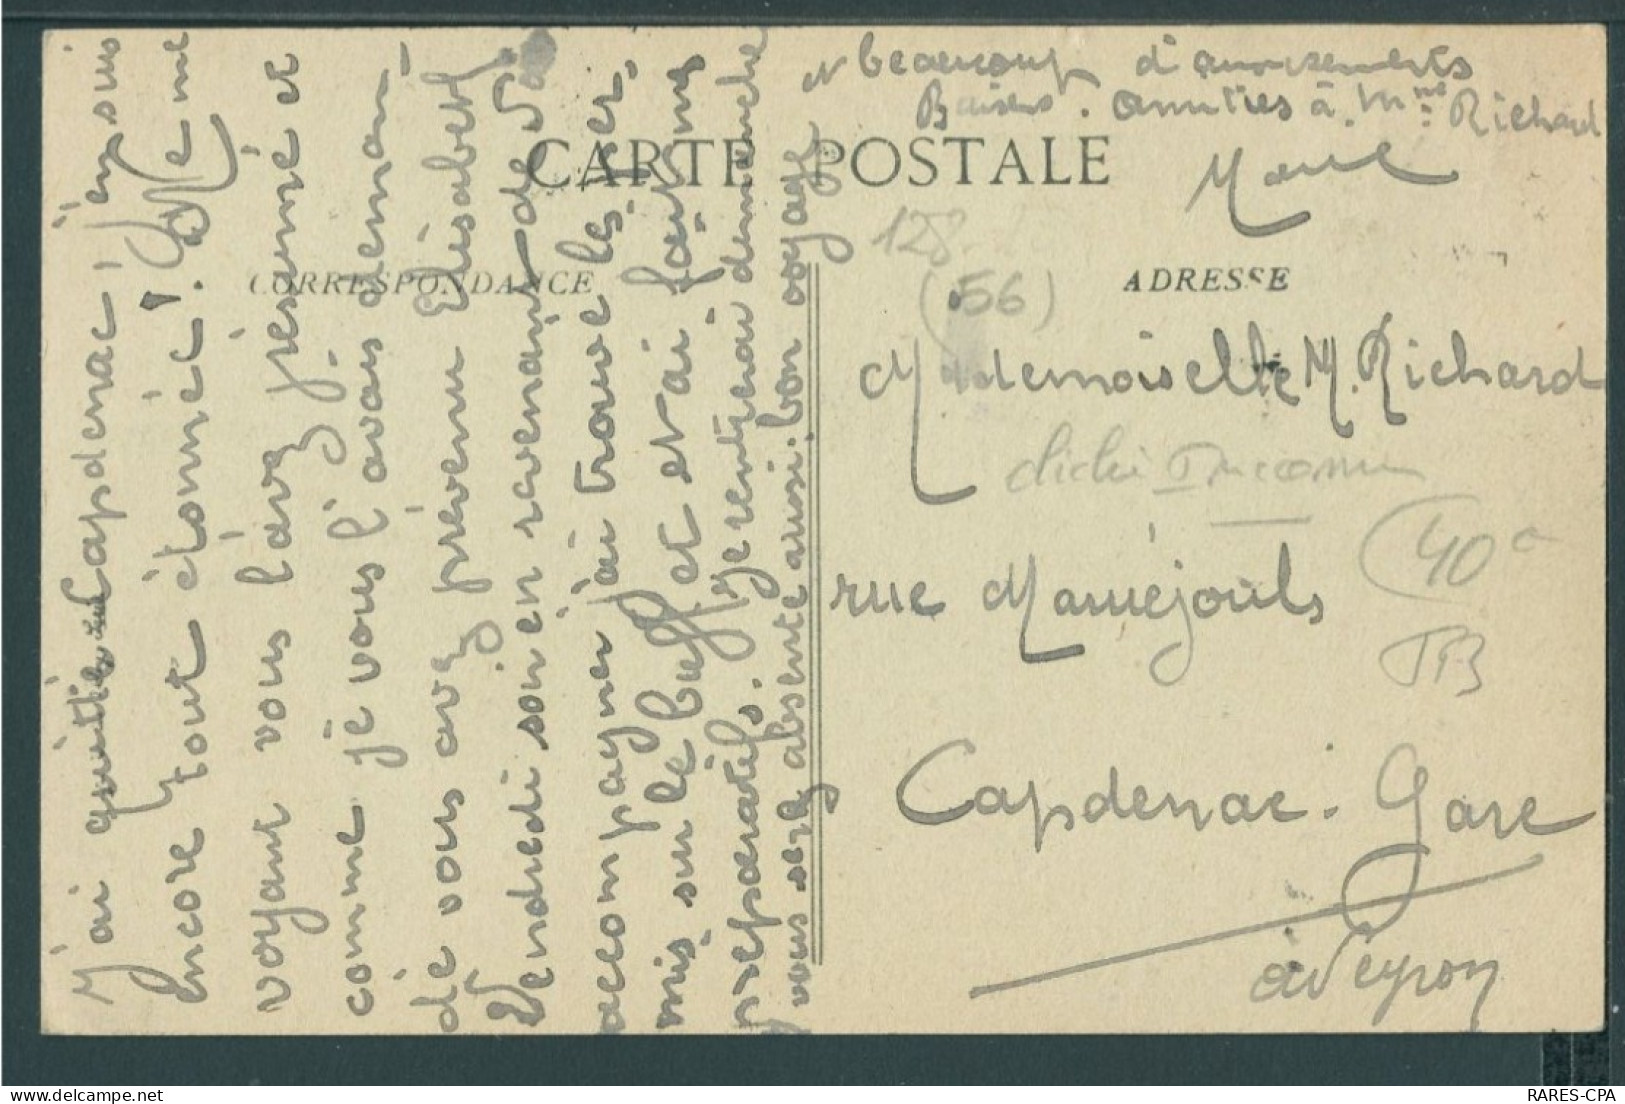 J'ai quitté Capdenac j'en suis
Encore tout étonnée!
voyant vous l'avez présumé et
comme je vous l'avais deman-
dé vous avez prévenu Elisabeth
Vendredi soir en revenant de
accompagner j'ai trouvé les
mis sur le buffet et ai fait mes
préparatifs. Je rentrerai dimanche
vous serez absente aussi. bon voyage
et beaucoup d'amusements
Baisers. amitiés à Mme Richard
CARTE POSTALE
CORRESPONDANCE
ADRESSE
128
(56)
Mademoiselle M. Richard
cliché
rue Maruéjouls
40
TB
Capdenac-Gare
aveyron
RARES-CPA